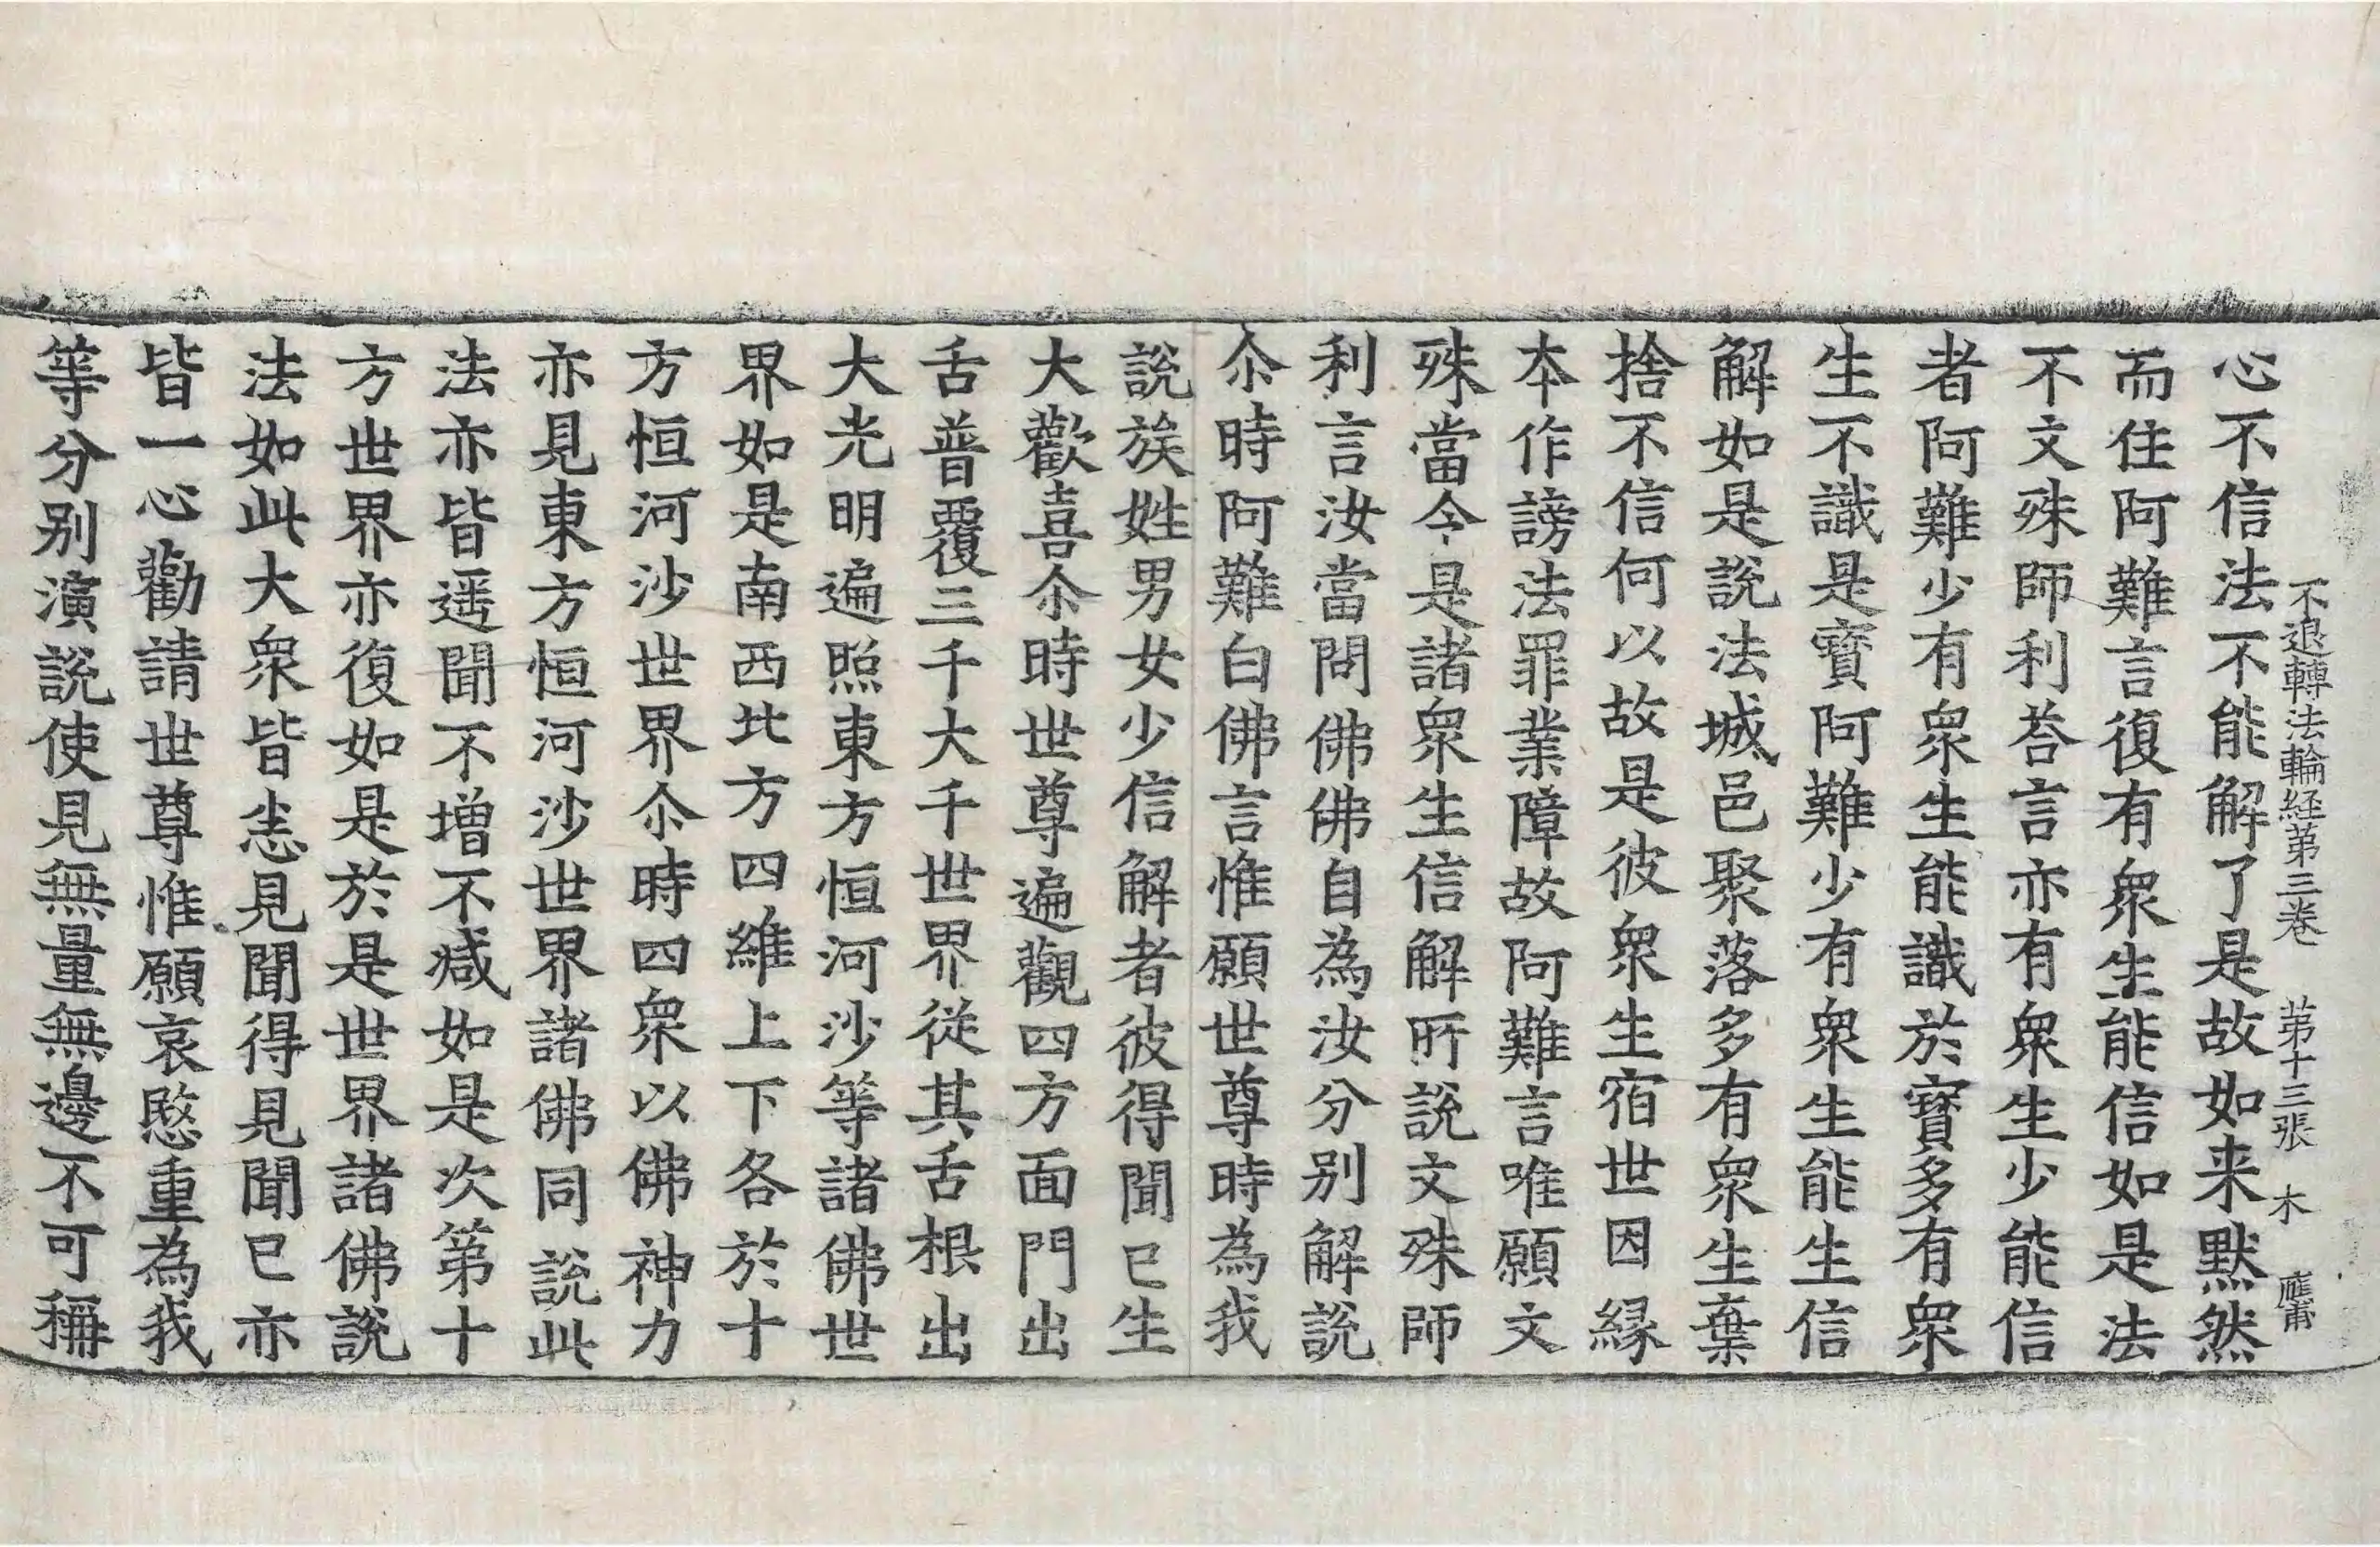 不退轉法輪経苐三巻　苐十三張　木　應甫
心不信法不能解了是故如来黙然
而住阿難言復有衆生能信如是法
不文殊師利荅言亦有衆生少能信
者阿難少有衆生能識於寳多有衆
生不識是寳阿難少有衆生能生信
解如是說法城邑聚落多有衆生棄
捨不信何以故是彼衆生宿世因縁
本作謗法罪業障故阿難言唯願文
殊當令是諸衆生信解所說文殊師
利言汝當問佛佛自為汝分别解說
尒時阿難白佛言惟願世尊時為我
說族姓男女少信解者彼得聞已生
大歡喜尒時世尊遍觀四方面門出
舌普覆三千大千世界從其舌根出
大光明遍照東方恒河沙等諸佛世
界如是南西北方四維上下各於十
方恒河沙世界尒時四衆以佛神力
亦見東方恒河沙世界諸佛同說此
法亦皆遥聞不增不减如是次第十
方世界亦復如是於是世界諸佛說
法如此大衆皆悉見聞得見聞已亦
皆一心勸請世尊惟願哀愍重為我
等分别演說使見無量無邊不可稱